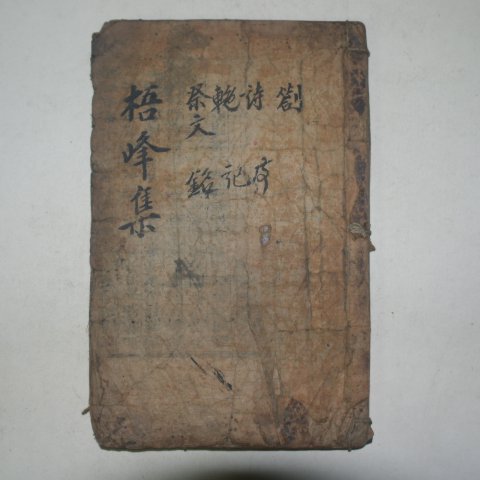 劄
詩 序
輓 記
祭文 銘
梧峰集